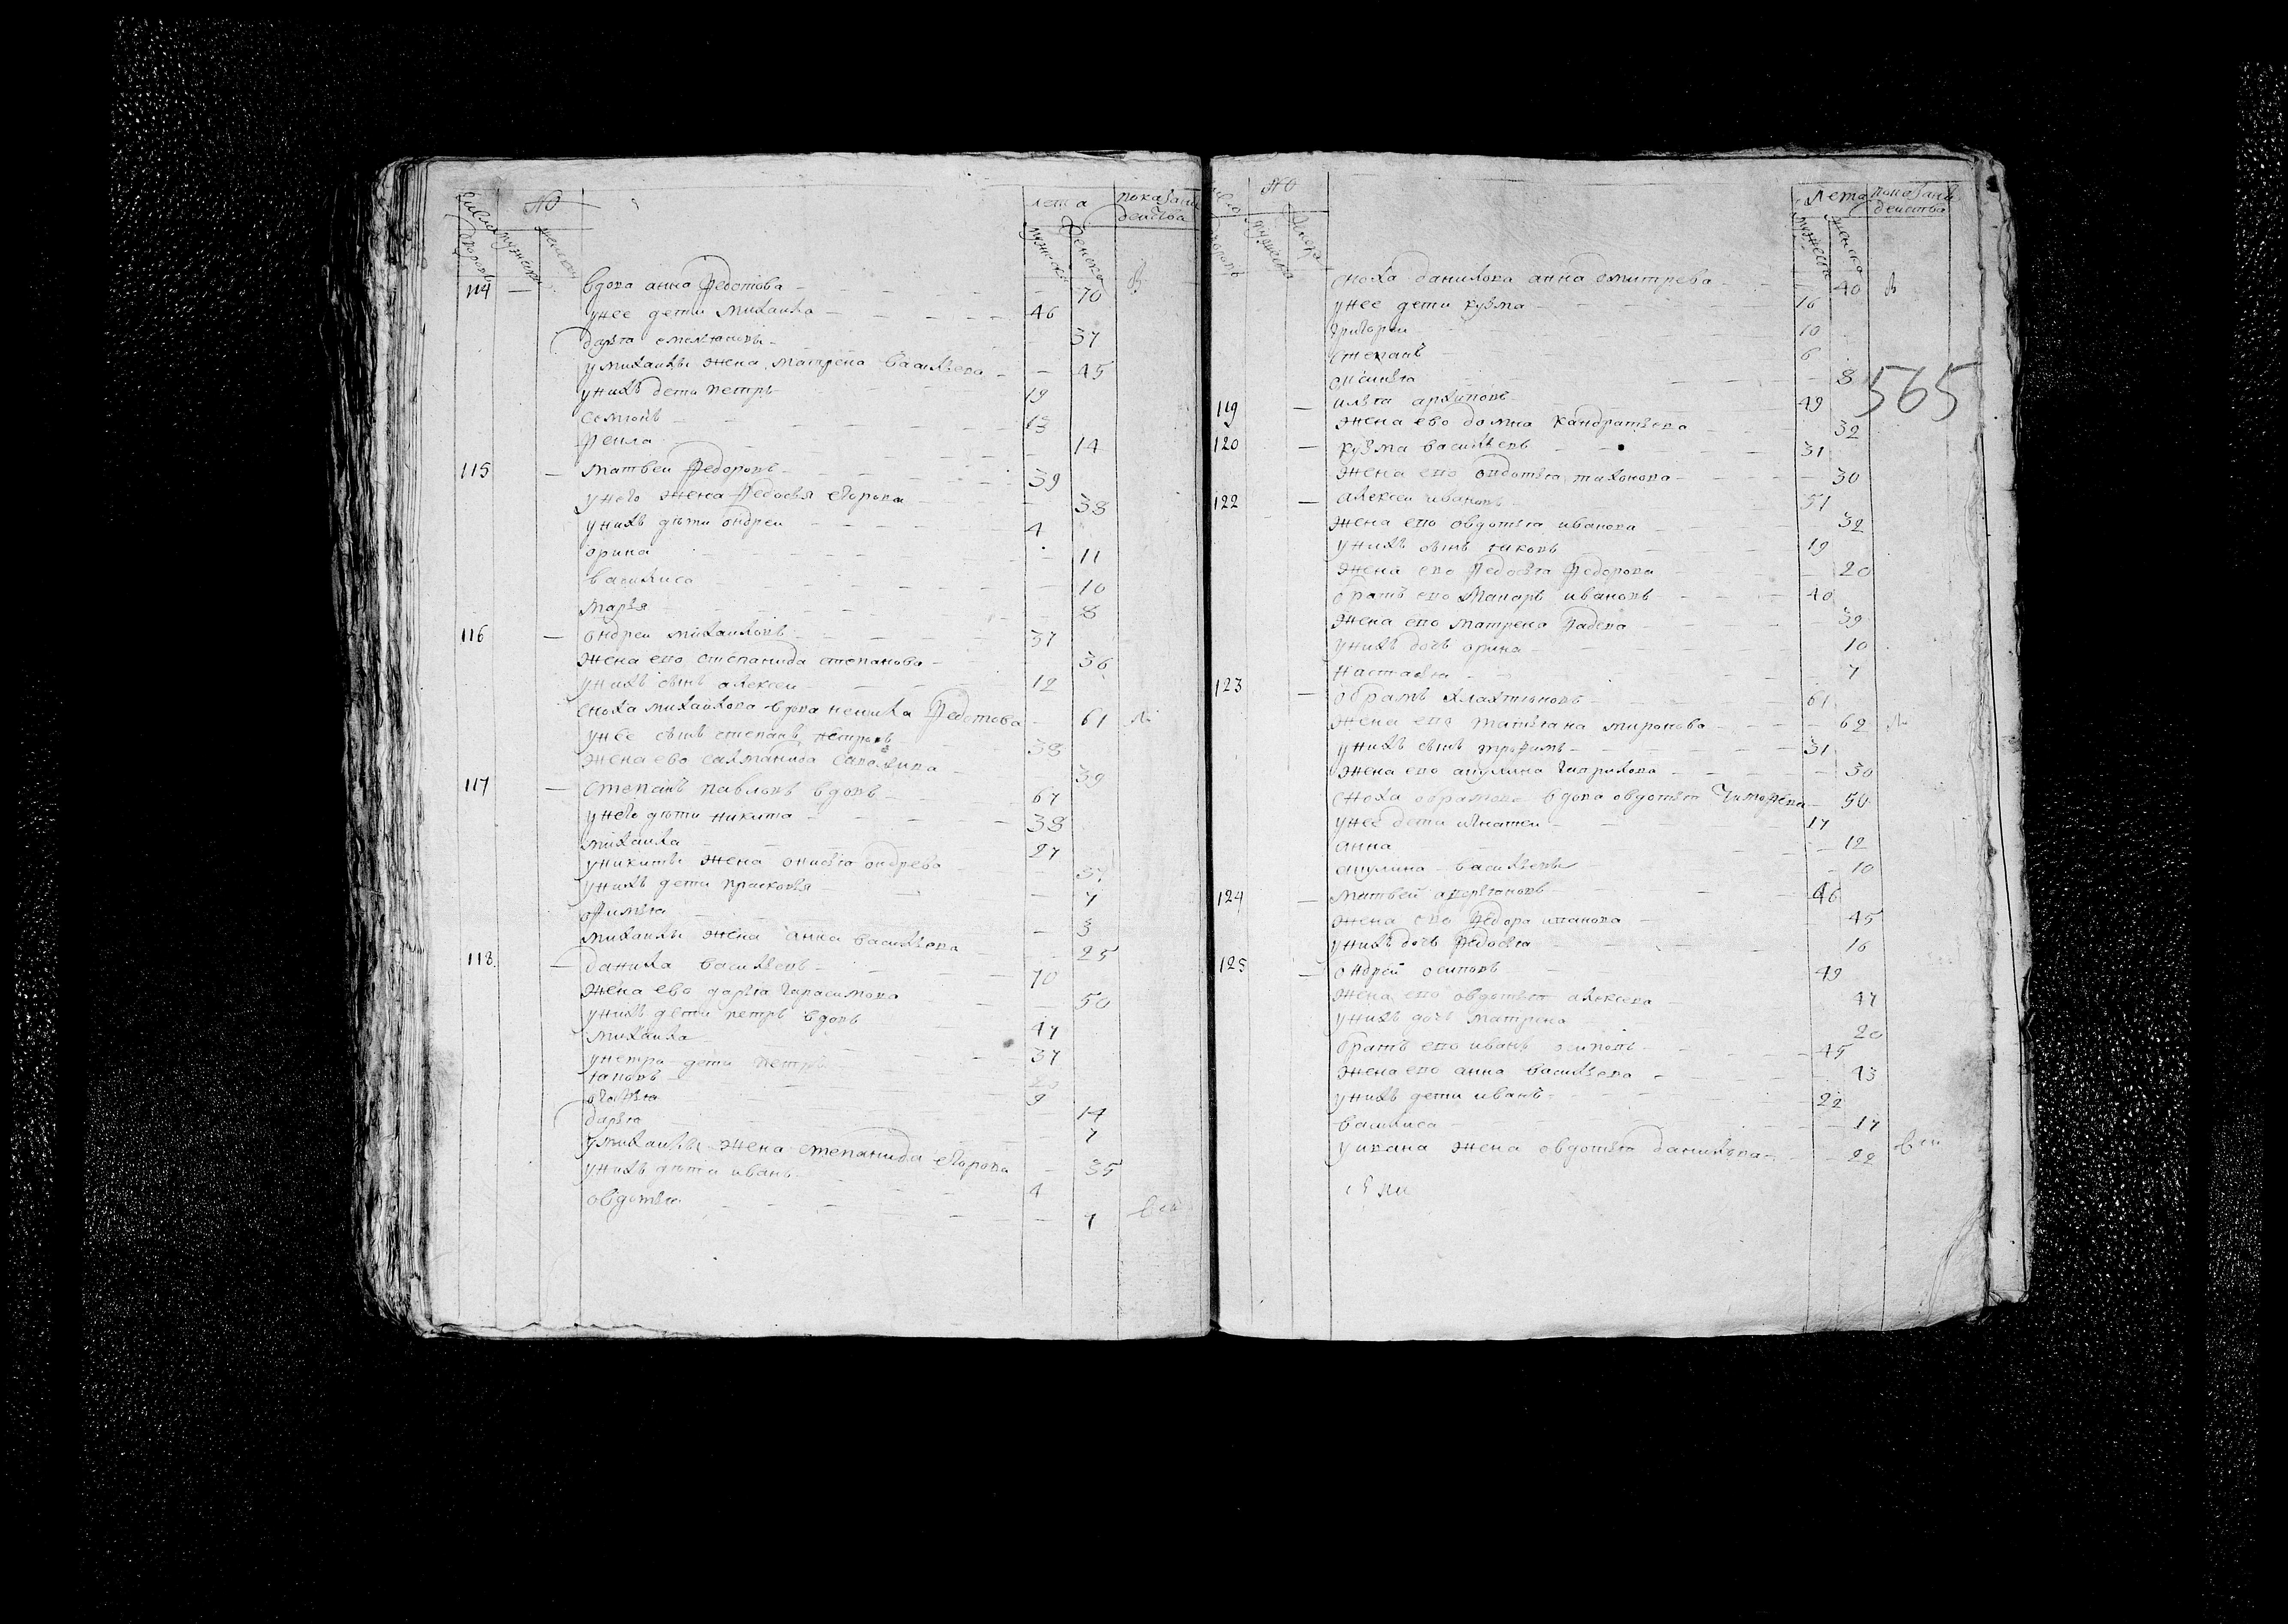 число дворовъ мужеска женска
№
лета
мужеска женска
показани действа
114 — вдова анна федотова — 70 в
у нее дети михаила — 46
дарья емельяновы — 37
у михаилы жена матрена васильева — 45
у нихъ дети петръ 19
семионъ — 13
фекла — 14
115 — матвеи федоровъ — 39
у него жена федосья егорова — 38
у нихъ дети ондреи — 4
орина — 11
василиса — 10
марья — 8
116 — ондреи михаиловъ — 37
жена ево степанида степанова — 36
у нихъ сынъ алексеи — 12
сноха михаилова вдова ненила федотова — 61
у нее сынъ степанъ петровъ 38
жена ево 39
117 — степанъ павловъ вдовъ — 67
у него дети никита — 38
михаила — 27
у никиты жена онисья ондрева 37
у нихъ дети прасковья — 7
офимья — 3
михаилы жена анна васильева — 25
118 — данила васильевъ — 70
жена ево дарья гарасимова — 50
у нихъ дети петръ вдовъ 47
михаила 37
у петра дети петръ 20
яковъ 9
огафья 14
дарья 7
у михаилы жена степанида егорова — 35
у нихъ дети иванъ — 4
овдотья — 1
№
лета
мужеска женска
показани действа
сноха данилова анна дмитрева — 40 в
у нее дети кузма — 16
григореи 10
степанъ 6
онисья — 8
565
119 — илья архиповъ — 49
жена ево домна кандратьева 32
120 — кузма васильевъ — 31
жена ево овдотья тихонова — 30
122 — алексеи ивановъ — 51
жена ево овдотья иванова — 32
у нихъ сынъ яковъ — 19
жена ево федосья федорова — 20
братъ ево макаръ ивановъ — 40
жена ево матрена фадева — 39
у нихъ дочь орина — 10
настасья — 7
123 — обрамъ 61
жена ево татьяна миронова — 62
у нихъ сынъ трофимъ — 31
жена ево акулина гаврилова — 30
сноха обрамова вдова овдотья — 50
у нее дети игнатеи — 17
анна — 12
акулина васильевы — 10
124 — матвеи 46
жена ево федора иванова — 45
у нихъ дочь федосья 16
125 — ондреи осиповъ — 49
жена ево овдотья алексева — 47
у нихъ дочь матрена 20
братъ ево иванъ осиповъ — 45
жена ево анна васильева — 43
у нихъ дети иванъ — 22
василиса — 17
у ивана жена овдотья данилова — 22